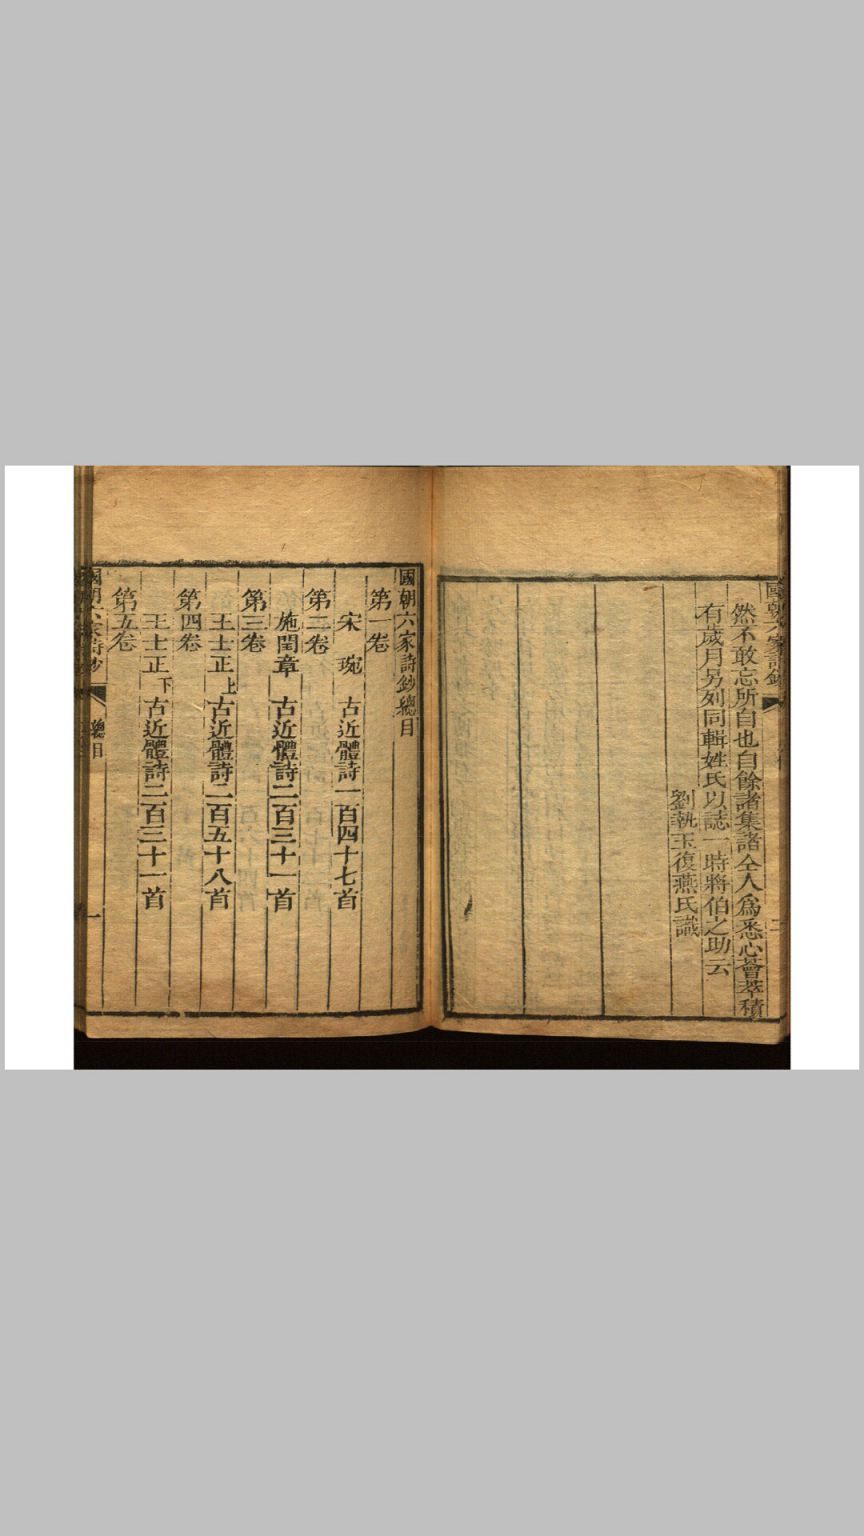 國朝六家詩鈔
然不敢忘所自也自餘諸集諸仝人爲悉心薈萃積
有歲月另列同輯姓氏以誌一時將伯之助云
劉執玉復燕氏識
國朝六家詩鈔總目
第一卷
宋琬 古近體詩一百四十七首
第二卷
施閏章 古近體詩二百三十一首
第三卷
王士正上 古近體詩二百五十八首
第四卷
王士正下 古近體詩二百三十一首
第五卷
國朝六家詩鈔 總目 一